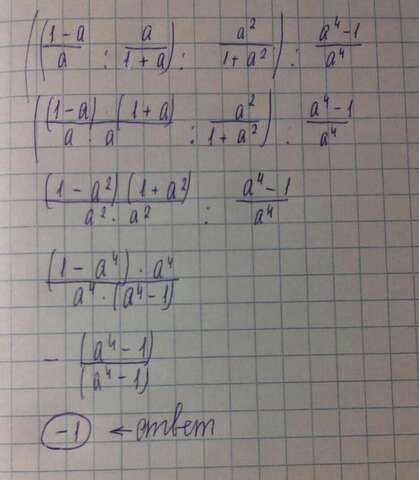 (((1-a)/a : a/(1+a)) : a²/(1+a²)) : (a⁴-1)/a⁴
(((1-a)·(1+a))/(a·a) : a²/(1+a²)) : (a⁴-1)/a⁴
((1-a²)(1+a²))/(a²·a²) : (a⁴-1)/a⁴
((1-a⁴)·a⁴)/(a⁴·(a⁴-1))
- (a⁴-1)/(a⁴-1)
-1 ← ответ